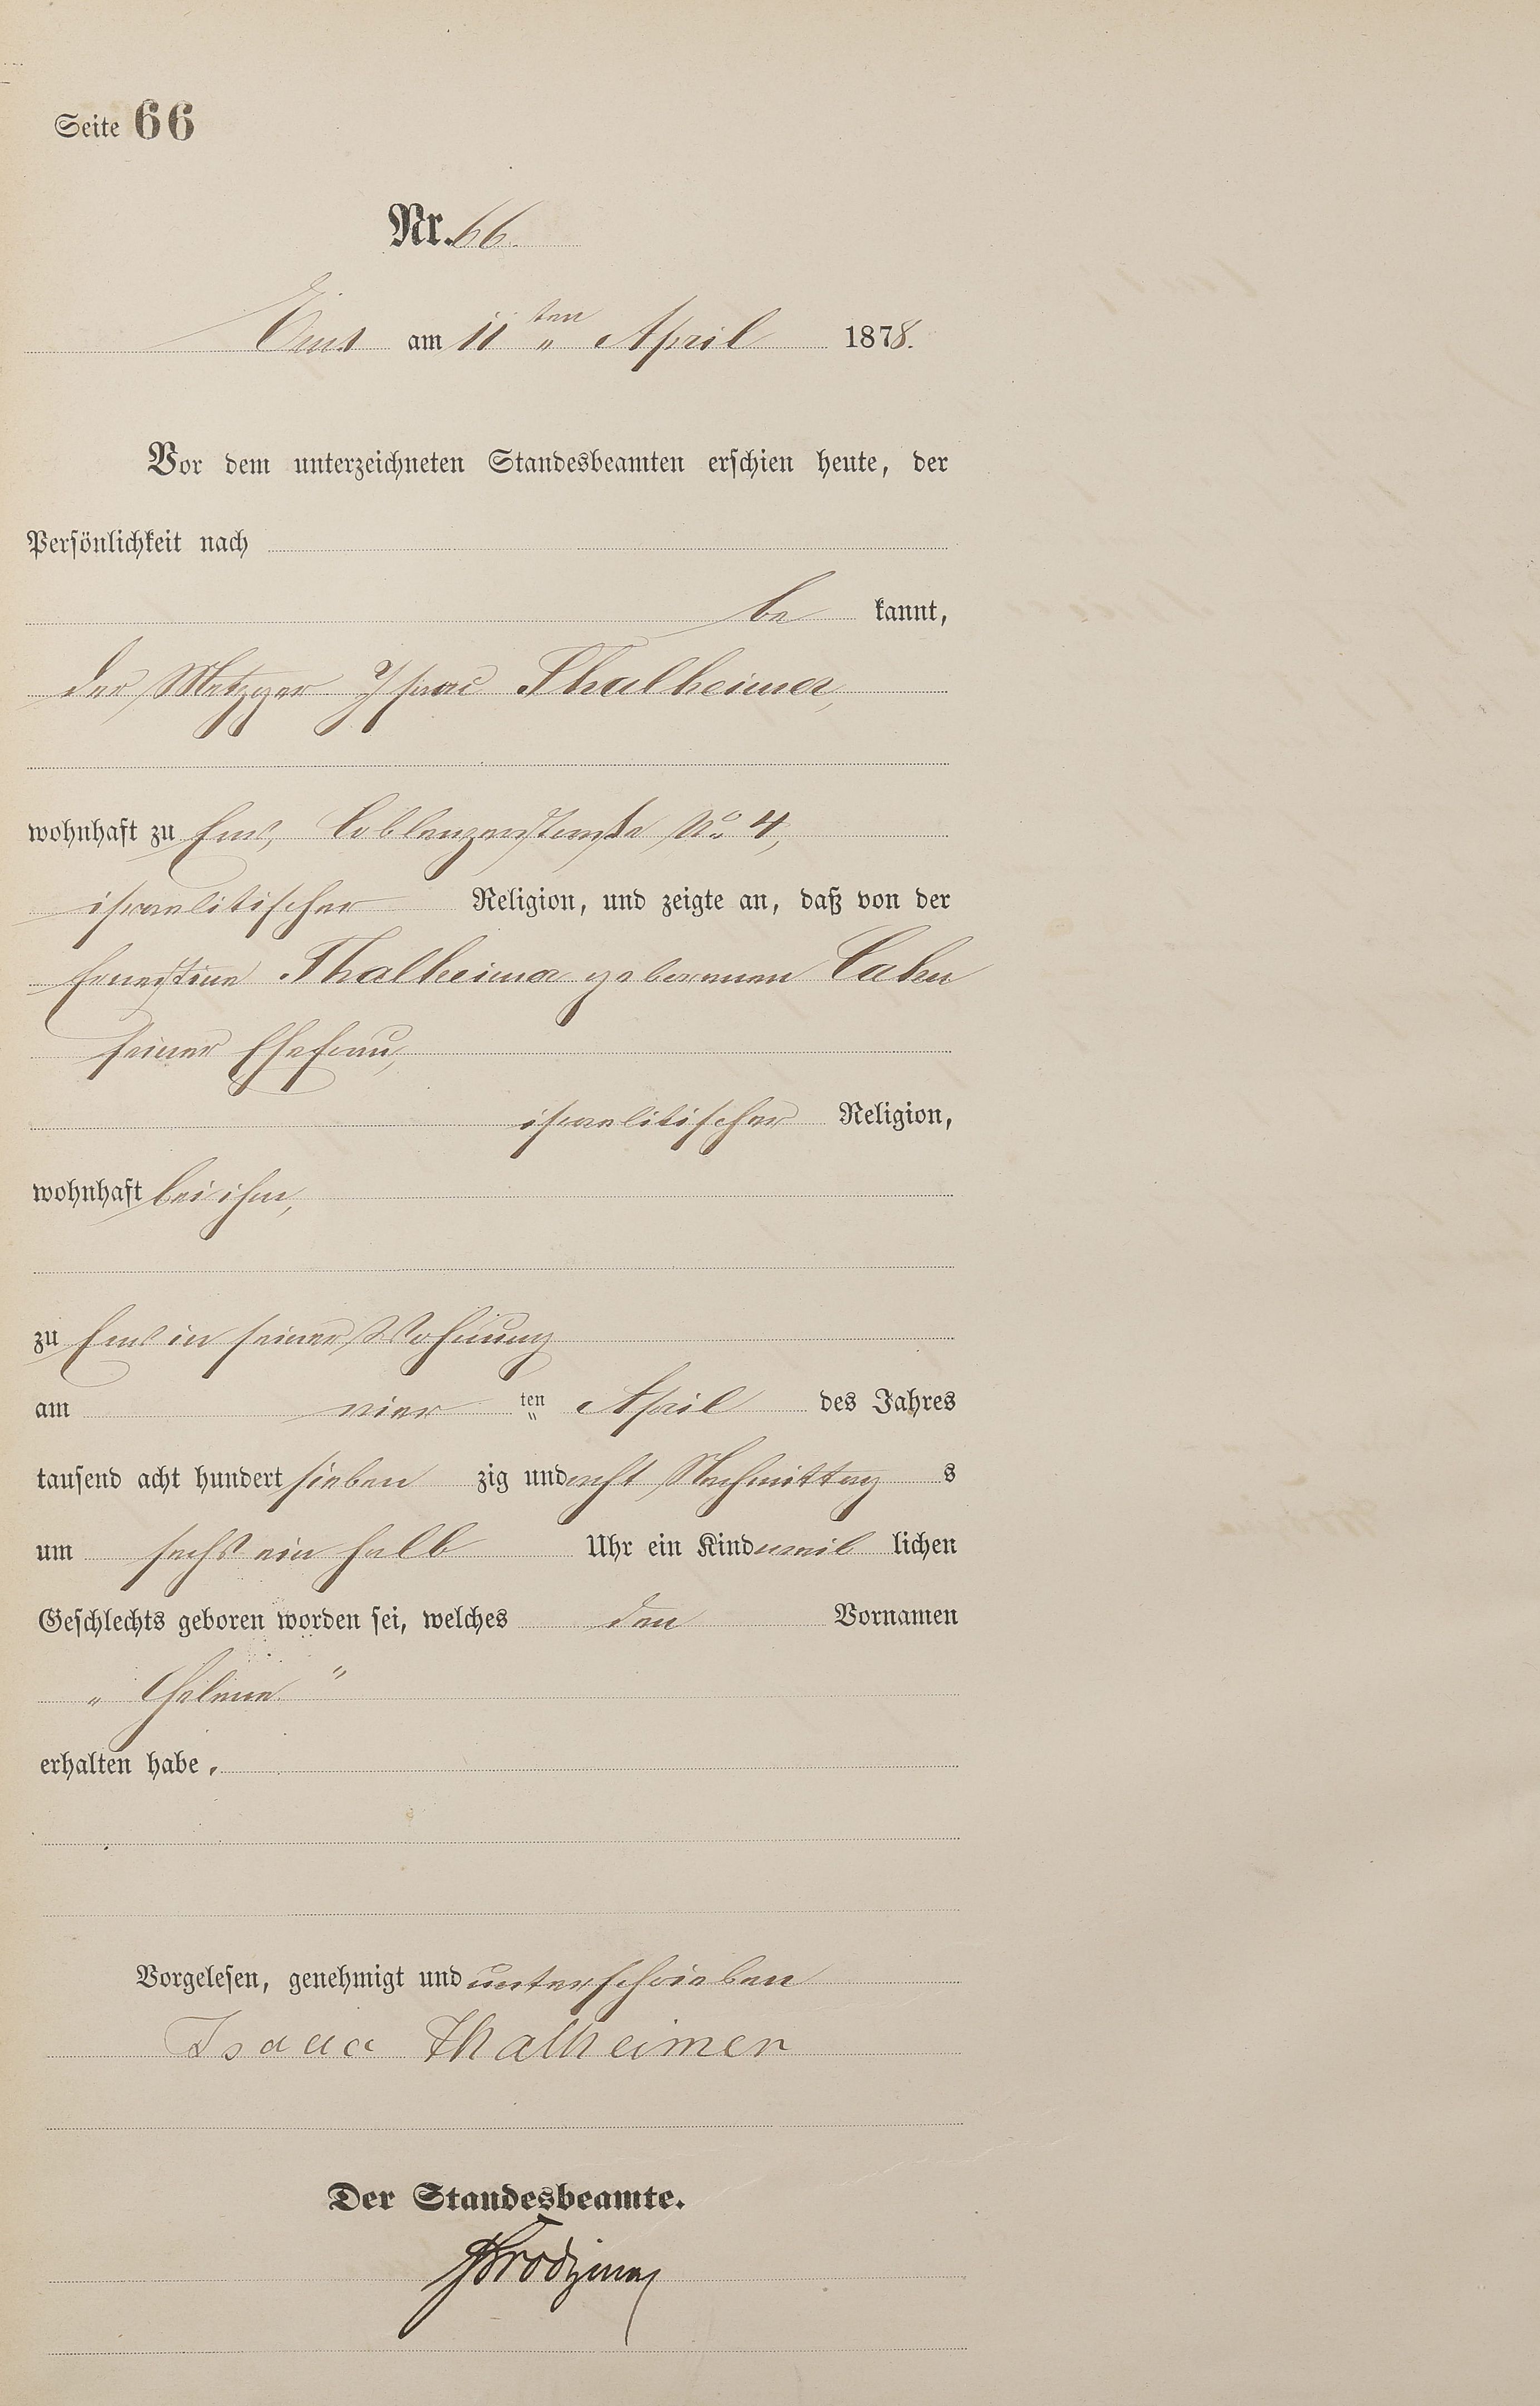 Seite 66
Nr. 66.
Ems am 11ten " April 1878.
Vor dem unterzeichneten Standesbeamten erschien heute, der
Persönlichkeit nach
be kannt,
der Metzger Isaac Thalheimer,
wohnhaft zu Ems, Coblenzerstraße No. 4,
israelitischer Religion, und zeigte an, daß von der
Ernestine Thalheimer geborenen Cahn
seiner Ehefrau,
israelitischer Religion,
wohnhaft bei ihm,
zu Ems in seiner Wohnung
am vier ten " April des Jahres
tausend acht hundert sieben zig und acht Nachmittag s
um sechs ein halb Uhr ein Kind weib lichen
Geschlechts geboren worden sei, welches den Vornamen
" "
erhalten habe.
Vorgelesen, genehmigt und unterschrieben
Isaac Thalheimer
Der Standesbeamte.